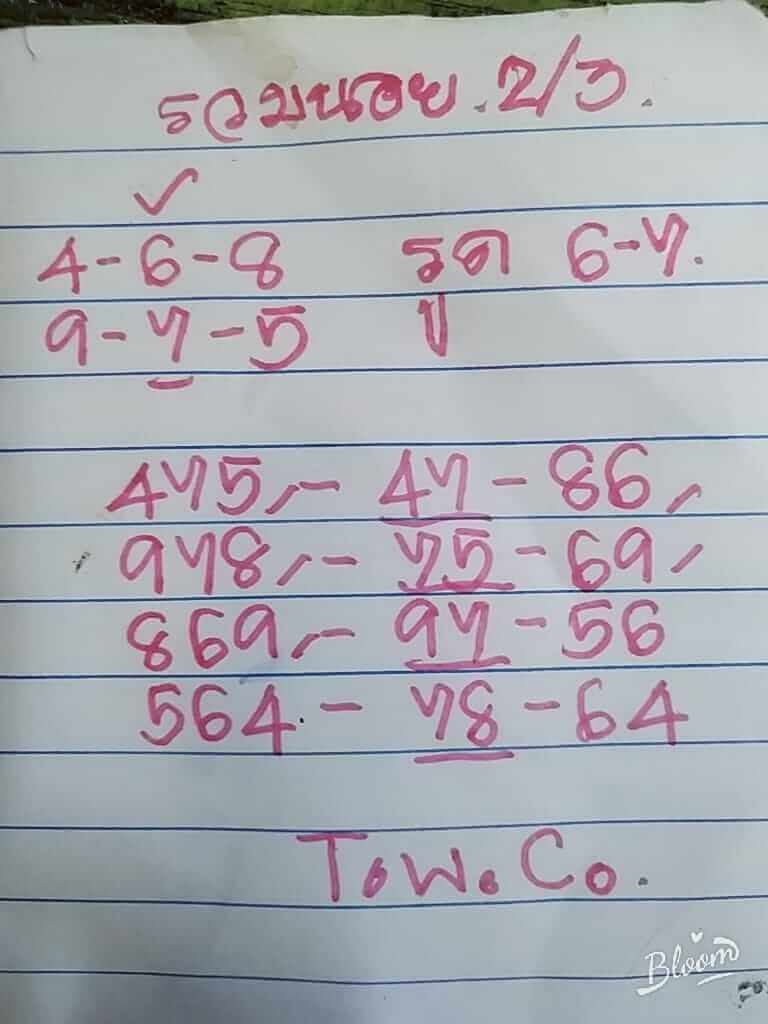 รวมหอย.2/3.
✓
4-6-8 รูด 6-7.
9-7-5 ปู
475,- 47-86,
978,- 75-69,
869,- 97-56
564.- 78-64
T.W.Co.
Bloom